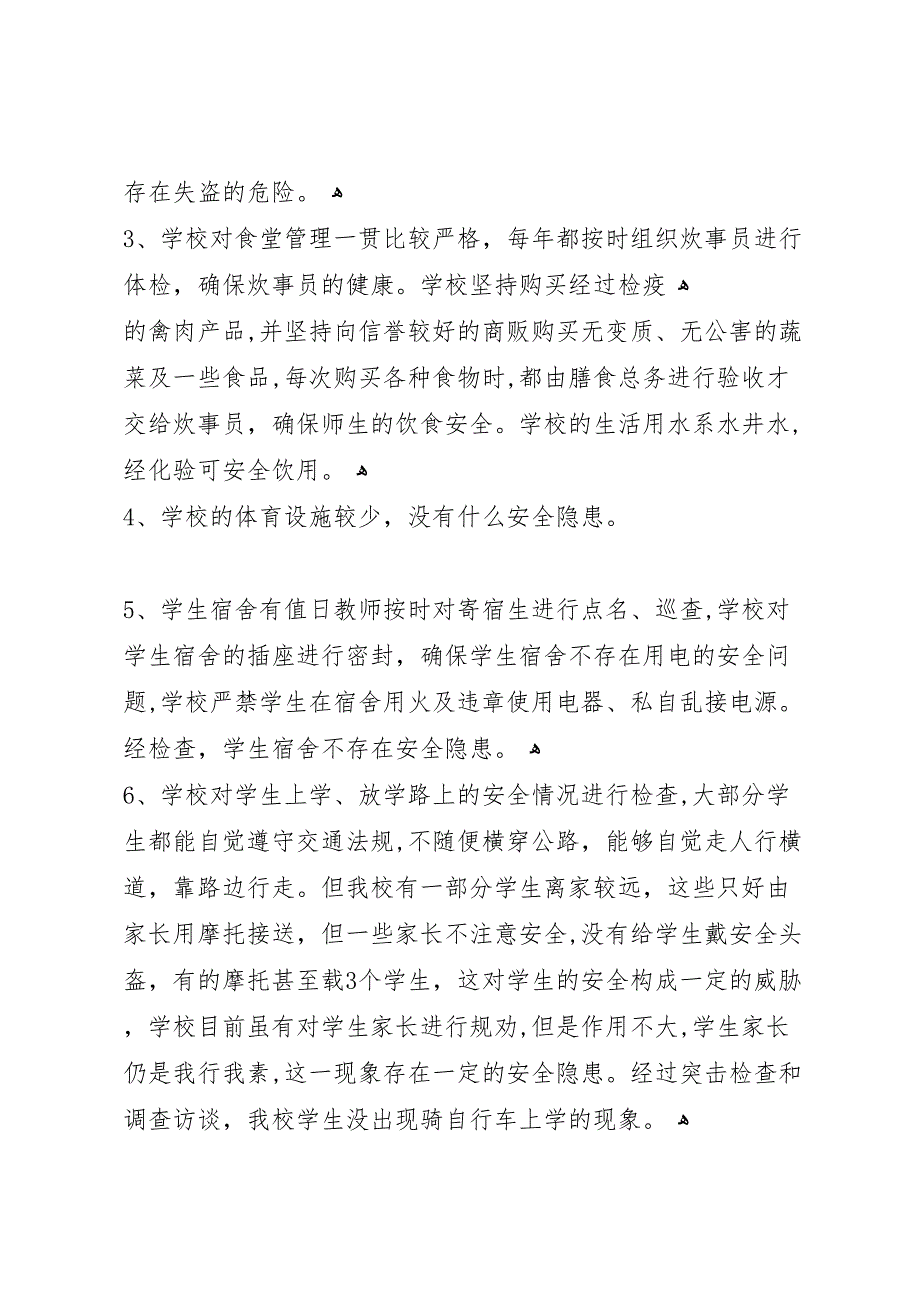 存在失盗的危险。 ﻫ
3、学校对食堂管理一贯比较严格，每年都按时组织炊事员进行
体检，确保炊事员的健康。学校坚持购买经过检疫 ﻫ
的禽肉产品,并坚持向信誉较好的商贩购买无变质、无公害的蔬
菜及一些食品,每次购买各种食物时,都由膳食总务进行验收才
交给炊事员，确保师生的饮食安全。学校的生活用水系水井水,
经化验可安全饮用。 ﻫ
4、学校的体育设施较少，没有什么安全隐患。
5、学生宿舍有值日教师按时对寄宿生进行点名、巡查,学校对
学生宿舍的插座进行密封，确保学生宿舍不存在用电的安全问
题,学校严禁学生在宿舍用火及违章使用电器、私自乱接电源。
经检查，学生宿舍不存在安全隐患。 ﻫ
6、学校对学生上学、放学路上的安全情况进行检查,大部分学
生都能自觉遵守交通法规,不随便横穿公路，能够自觉走人行横
道，靠路边行走。但我校有一部分学生离家较远，这些只好由
家长用摩托接送，但一些家长不注意安全,没有给学生戴安全头
盔，有的摩托甚至载3个学生，这对学生的安全构成一定的威胁
，学校目前虽有对学生家长进行规劝,但是作用不大,学生家长
仍是我行我素,这一现象存在一定的安全隐患。经过突击检查和
调查访谈，我校学生没出现骑自行车上学的现象。 ﻫ